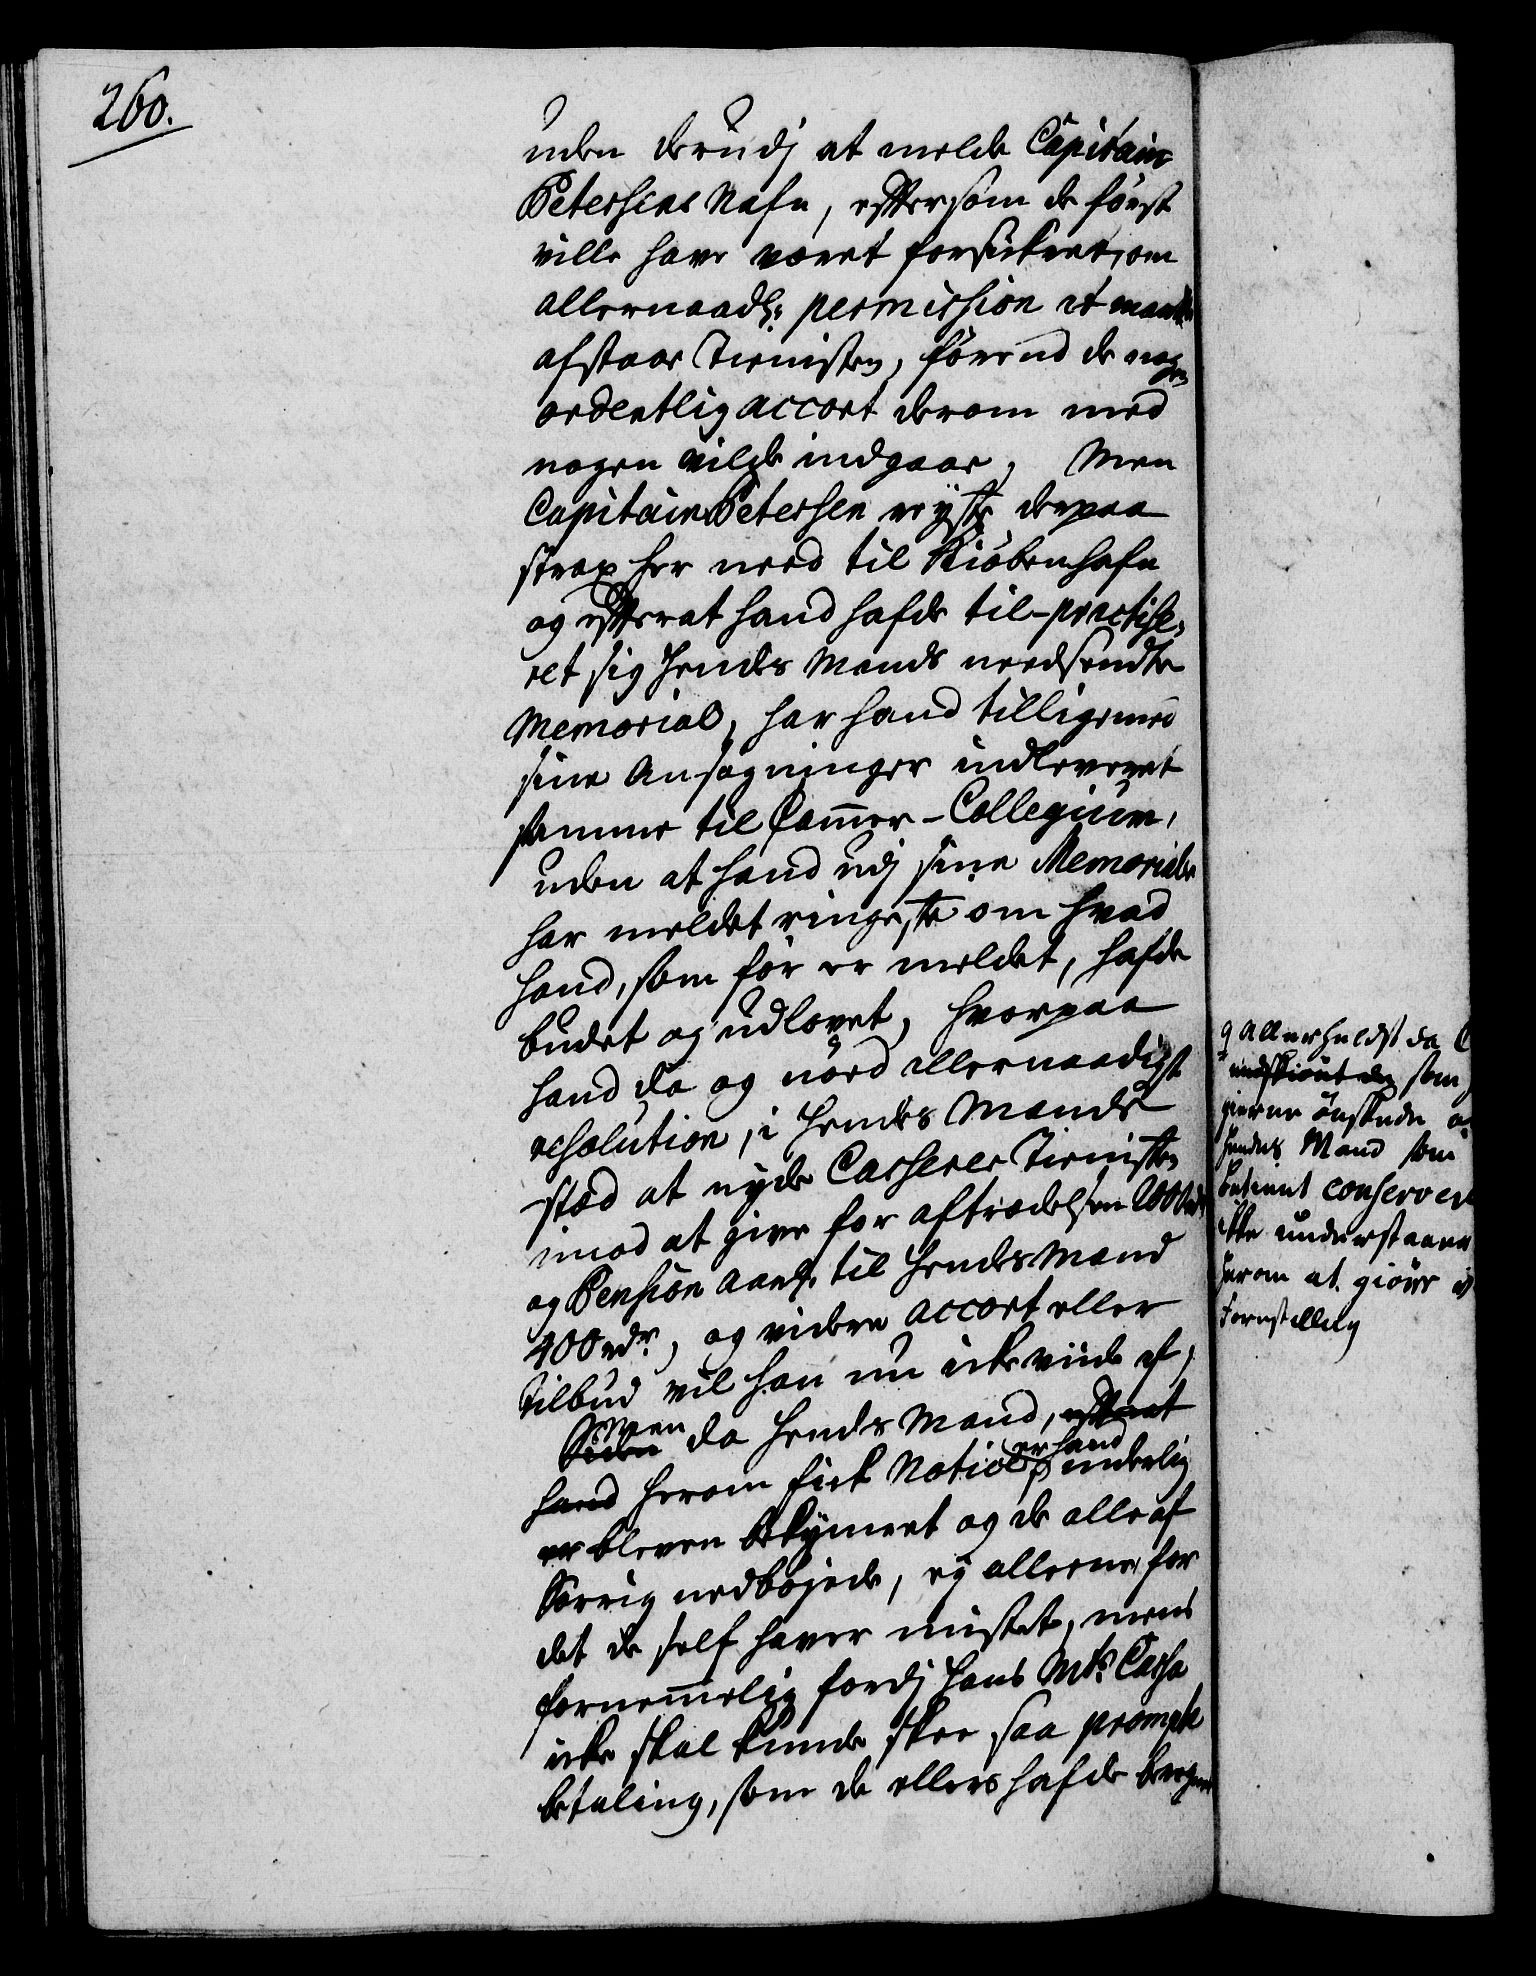 260.
uden derudj at melde Capitain
Petersens Nafn, eftersom de først
ville have været forsikret, om
allernaadg: permission at maatte
afstaae Tienisten, førend de nogen
ordentlig accort derom med
nogen vilde indgaae, Men
Capitain Petersen reyste derpaa
strax her need til Kiøbenhafn
og efterat hand hafde til-practise-
ret sig Hendes Mands needsendte
Memorial, har hand tilligemed
sine Ansøgninger indleveret
samme til Cammer-Collegium,
uden at hand udj sine Memorialer
har meldet ringeste om hvad
hand, som før er meldet, hafde
budet og udlovet, hvorpaa
hand da og nøed allernaadigst
resolution, i Hendes Mands
stæd at nyde Casserer Tienisten
imod at give for aftrædelsen 2000 rdr
og Pension aarlig til Hendes Mand
400 rdr, og videre accort eller
tilbud vil han nu icke viide af,
Siden Men da Hendes Mand, efterat
hand herom fick Notice, er hand inderlig
er bleven bekymret og de alle af
Sorrig nedbøjede, ey allene for
det de self haver mistet, mens
fornemmelig fordj Hans Mts Cassa
icke skal kunde skee saa prompte
betaling, som de ellers hafde
Allerhelst da
som
gierne ønskede
Hendes Mand som
betient conserveret
icke understaae
herom at giøre
Forestilling